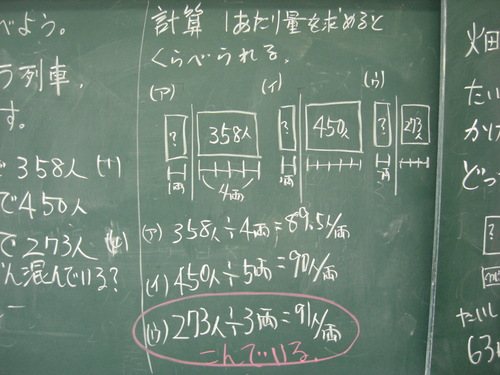 べよう。
う列車、
す。
で358人
で450人
で273人
ん混んでいる?
計算 1あたり量を求めると
くらべられる。
(ア) (イ) (ウ)
? 358人 ? 450人 ? 273人
1両 4両 1両 1両
(ア) 358人÷4両=89.5人/両
(イ) 450人÷5両=90人/両
(ウ) 273人÷3両=91人/両
こんでいる。
畑
たい
かけ
どっ
?
たいし
63